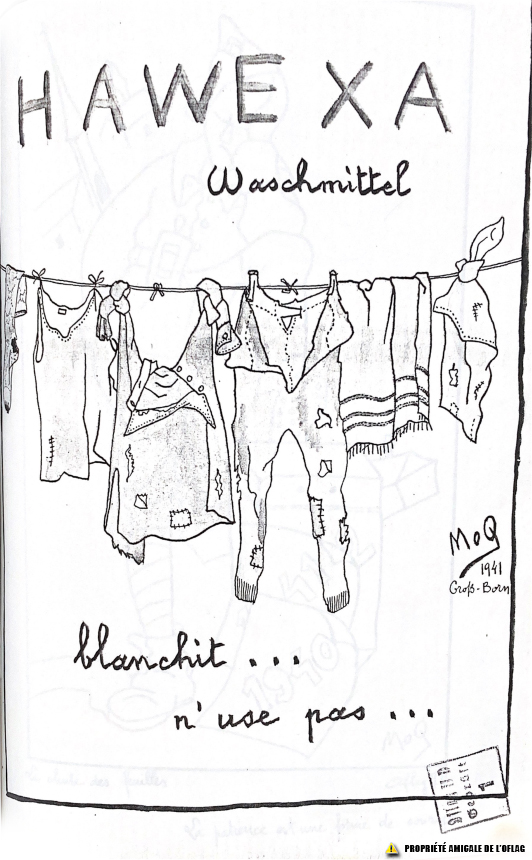 HAWE XA
Waschmittel
MoQ
1941
Groß-Born
blanchit ...
n'use pas ...
PROPRIÉTÉ AMICALE DE L'OFLAG